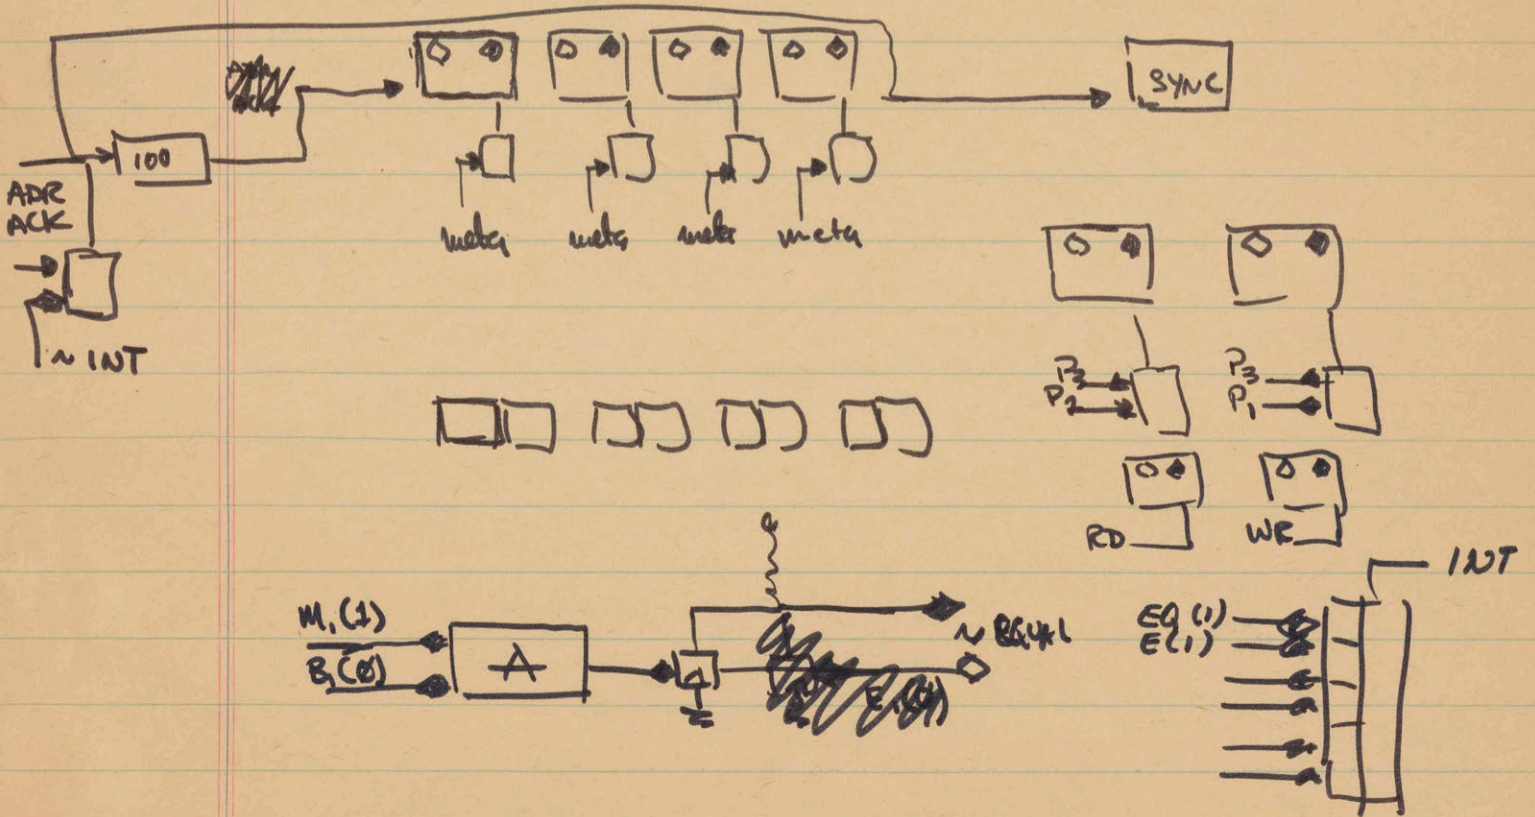 SYNC
100
ADR
ACK
meta meta meta meta
~ INT
P3
P2
P3
P1
RD
WR
INT
M1(1)
B1(0)
A
~ EQUAL
EQ(1)
E(1)